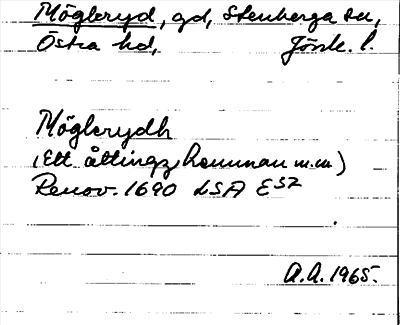 Mögleryd, gd, Stenberga sn,
Östra hd, Jönk. l.
Möglerydh
(Ett åttingz hemman m.m)
Renov. 1690 LSA E52
A.A. 1965.